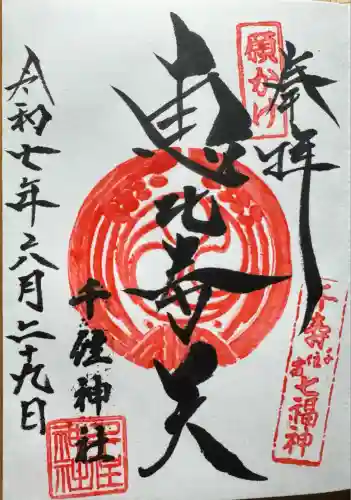 奉拝
願かけ
恵比寿天
千寿七福神
千住宿
千住神社
令和七年六月二十九日
千住神社